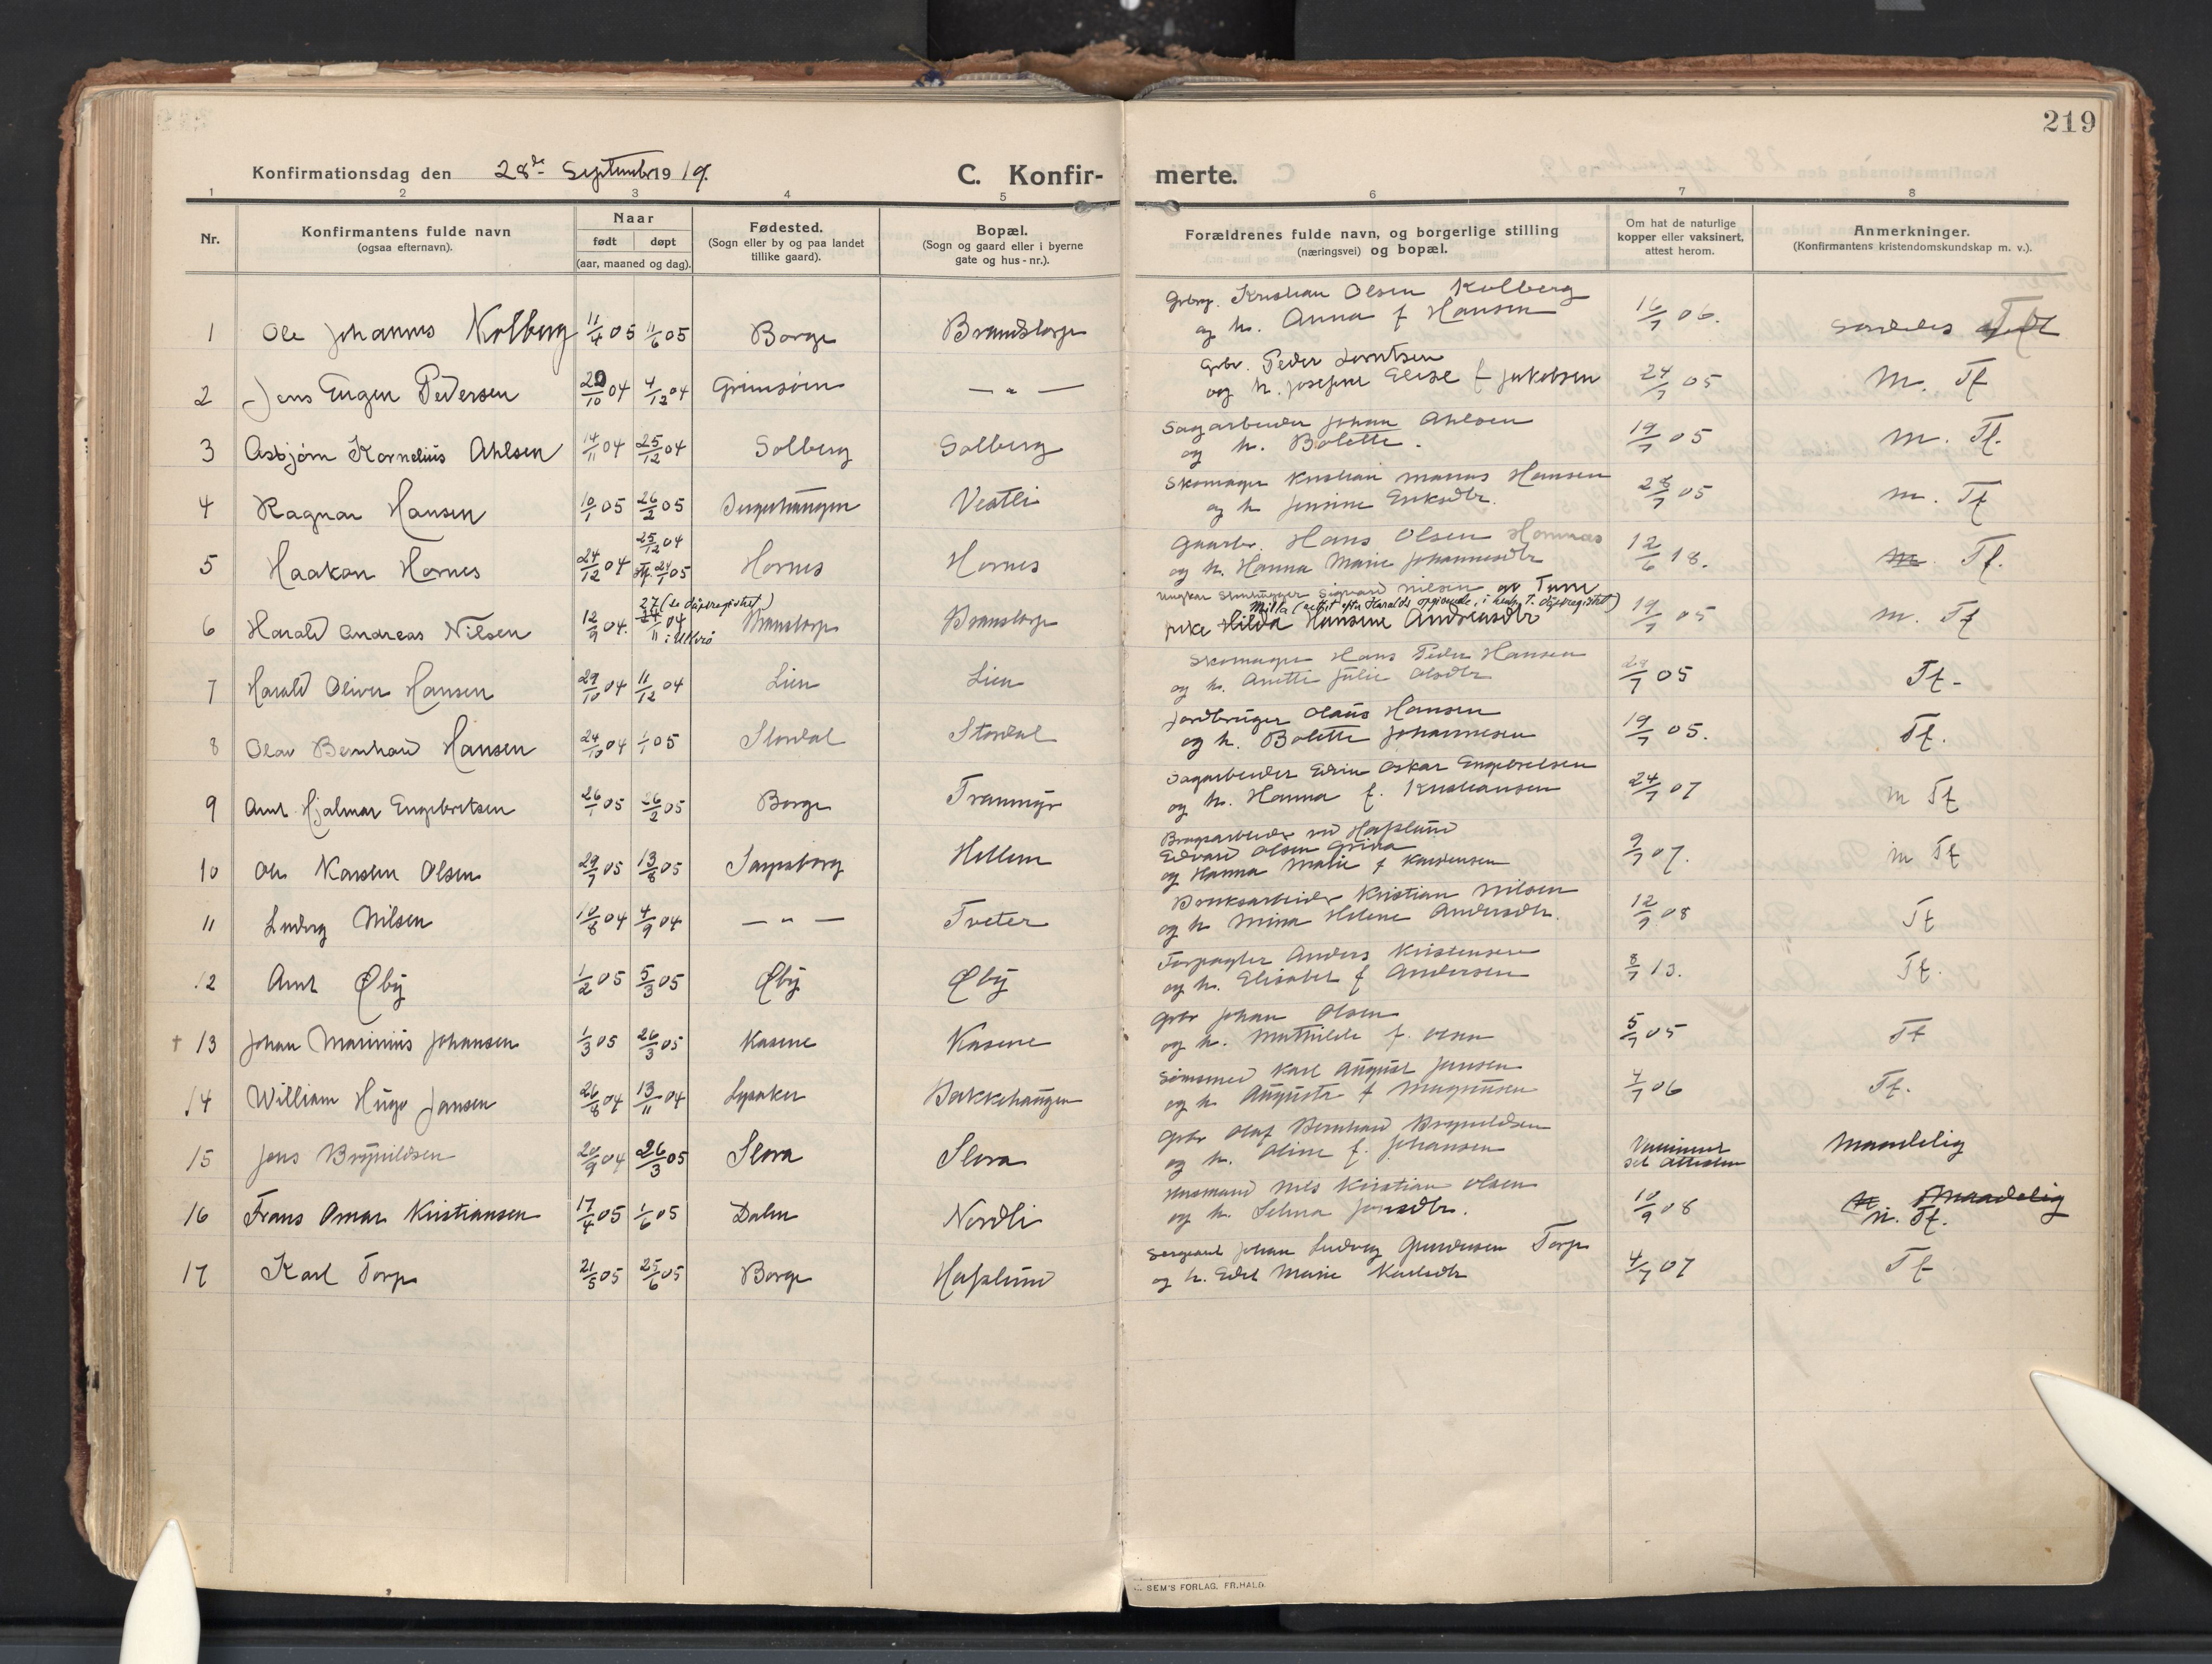 219
Konfirmationsdag den 28de September 1919.
C. Konfir- merte.
1 2 3 4 5 6 7 8
Nr.
Konfirmantens fulde navn
(ogsaa efternavn).
Naar
født døpt
(aar, maaned og dag).
Fødested.
(Sogn eller by og paa landet
tillike gaard).
Bopæl.
(Sogn og gaard eller i byerne
gate og hus-nr.).
Forældrenes fulde navn, og borgerlige stilling
(næringsvei) og bopæl.
Om hat de naturlige
kopper eller vaksinert,
attest herom.
Anmerkninger.
(Konfirmantens kristendomskundskap m. v.).
1 Ole Johannes Kolberg 11/4 05 11/6 05 Borge Brandstorp
Grbrg. Kristian Olsen Kolberg
og h. Anna f Hansen 16/7 06.
2 Jens Eugen Pedersen 20/10 04 4/12 04 Grimsøen — " —
Grbr. Peder Lorntsen
og h. Josefine Elise f Jakobsen 24/7 05 M. Tf
3 Asbjørn Kornelius Ahlsen 14/11 04 25/12 04 Solberg Solberg
Sagarbeider Johan Ahlsen
og h. Bolette. 19/7 05 M. Tf.
4 Ragnar Hansen 10/1 05 26/2 05 Vestli
Skomager Kristian Marius Hansen
og h Jensine Eriksdtr. 28/7 05 M. Tf
5 Haakon Hornes 24/12 04 25/12 04 24/1 05 Hornes Hornes
Gaarbr. Hans Olsen Hornnes
og h. Hanna Marie Johannesdtr 12/6 18. M Tf.
6 Harald Andreas Nilsen 12/9 04. 27 (se døpsregistret) 24/11 04 Branstorp Branstorp
Ungkar Stenhugger Sigvard Nilsen av Tune
Milla (rettet efter Haralds opgivende, i henh. t. døpsregistret)
pike Hilda Hansine Andreasdtr 19/7 05 M. Tf
7 Harald Oliver Hansen 29/10 04 11/12 04 Lien Lien
Skomager Hans Peder Hansen
og h. Anette Julie Olsdtr 7 05 Tf-
8 Olav Bernhard Hansen 24/10 04 1/1 05 Stordal Stordal
Jordbruger Olaus Hansen
og h. Bolette Johannesen 19/7 05. Tf.
9 Arnt Hjalmar Engebretsen 26/1 05 26/2 05 Borge Tranmyr
Sagarbeider Edvin Oskar Engebretsen
og h. Hanna f. Kristiansen 24/7 07 M Tf
10 Ole Karsten Olsen 29/7 05 13/8 05 Sarpsborg Hellem
Brugsarbeider ved Hafslund
Edvard Olsen Grina
og Hanna Marie f Karstensen 9/7 07. M Tf
11 Ludvig Nilsen 10/8 04 4/9 04 — " — Tveter
Bruksarbeider Kristian Nilsen
og h Mina Helene Andersdtr. 12/9 08 Tf
12 Arnt Øby 1/2 05 5/3 05 Øby Øby
Forpagter Anders Kristensen
og h. Elisabet f Andersen 8/7 13. Tf.
† 13 Johan Marinius Johansen 1/3 05 26/3 05 Kasene Kasene
Grbr Johan Olsen
og h. Mathilde f. Olsen 5/7 05 Tf
14 William Hugo Jansen 26/8 04 13/11 04 Lysaker Bakkehaugen
Sømsmed Karl August Jansen
og h Augusta f Magnusen 4/7 06 Tf.
15 Jens Brynildsen 20/9 04 26/3 05 Slora Slora
Grbr Olaf Bernhard Brynildsen
og h. Oline f. Johansen Vaccineret set attesten Maadelig
16 Frans Omar Kristiansen 17/4 05 1/6 05 Dalen Nordli
Husmand Nils Kristian Olsen
og h. Selma Jensdtr. 10/9 08 M Maadelig
M. Tf.
17 Karl Torp 21/5 05 25/6 05 Borge Hafslund
Sergeant Johan Ludvig Gundersen Torp
og h. Edel Marie Karlsdtr 4/7 07 Tf
SEM'S FORLAG. FR.HALD.